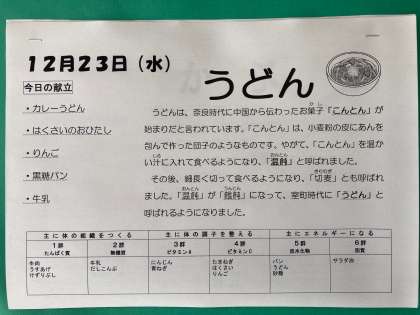 12月23日（水）
うどん
今日の献立
・カレーうどん
・はくさいのおひたし
・りんご
・黒糖パン
・牛乳
うどんは、奈良時代に中国から伝わったお菓子「こんとん」が
始まりだと言われています。「こんとん」は、小麦粉の皮にあんを
包んで作った団子のようなものです。やがて、「こんとん」を温か
い汁に入れて食べるようになり、「温飩」と呼ばれました。
その後、細長く切って食べるようになり、「切麦」とも呼ばれ
ました。「温飩」が「饂飩」になって、室町時代に「うどん」と
呼ばれるようになりました。
主に体の組織をつくる 主に体の調子を整える 主にエネルギーになる
1群 2群 3群 4群 5群 6群
たんぱく質 無機質 ビタミンA ビタミンC 炭水化物 脂質
牛肉 牛乳 にんじん たまねぎ パン サラダ油
うすあげ だしこんぶ 青ねぎ はくさい うどん
けずりぶし りんご 砂糖